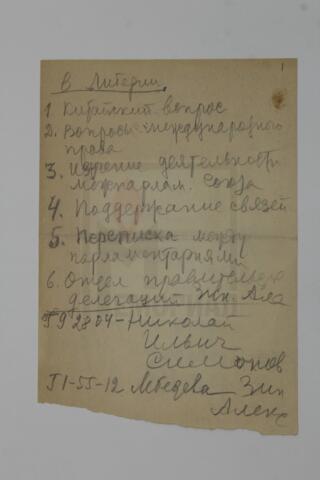 1
В Литерии
1. Китайский вопрос
2. Вопросы международного
права
3. Изучение деятельности
межпарлам. Союза
4. Поддержание связей
5. Переписка между
парламентариями
6. Отдел
делегаций Зин Але
Г9 28 04 - Николай
Ильич
Симонов
Г1-55-12 Лебедева Зин
Алекс